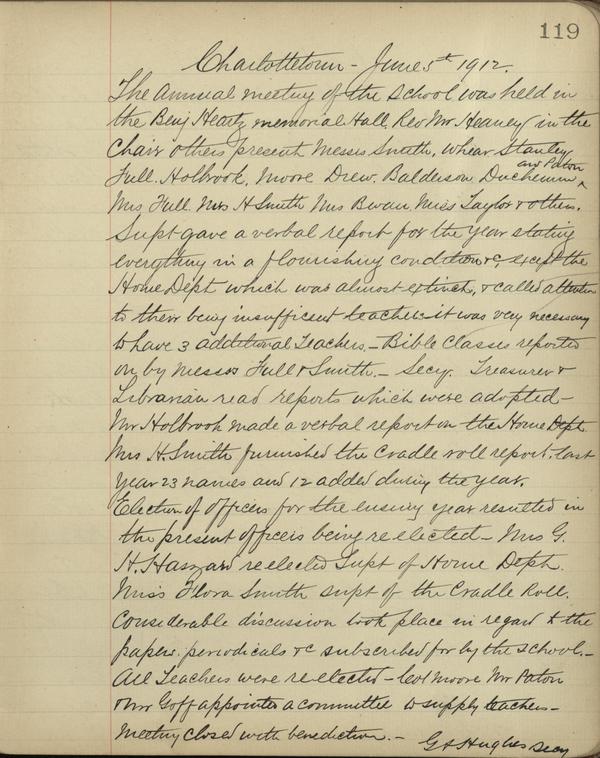 119
Charlottetown - June 5th 1912.
The Annual meeting of the School was held in
the Benj Heartz memorial Hall. Rev Mr Heaney in the
Chair others present Messrs Smith, Whear Stanley
and Paton
Full. Holbrook, Moore Drew. Balderson Duchemin ^
Mrs Full. Mrs H Smith Mrs Miss Taylor & others.
Supt gave a verbal report for the year stating
everything in a flourishing condition &c, except the
Home Dept which was almost extinct, & called attention
to there being insufficient teachers it was very necessary
to have 3 additional Teachers. - Bible Classes reported
on by Messrs Full & Smith. - Secy. Treasurer &
Librarian read reports which were adopted -
Mr Holbrook made a verbal report on the Home Dept
Mrs H. Smith furnished the Cradle roll report. last
Year 23 names and 12 added during the year.
Election of Officers for the ensuing year resulted in
the present officers being re elected - Mrs G.
H. Haszard re elected Supt of Home Dept.
Miss Flora Smith supt of the Cradle Roll.
Considerable discussion took place in regard to the
papers. periodicals &c subscribed for by the School. -
All Teachers were re-elected - Moore Mr Paton
& Mr Goff appointed a committee to supply teachers -
Meeting closed with benediction. -
Hughes Secy